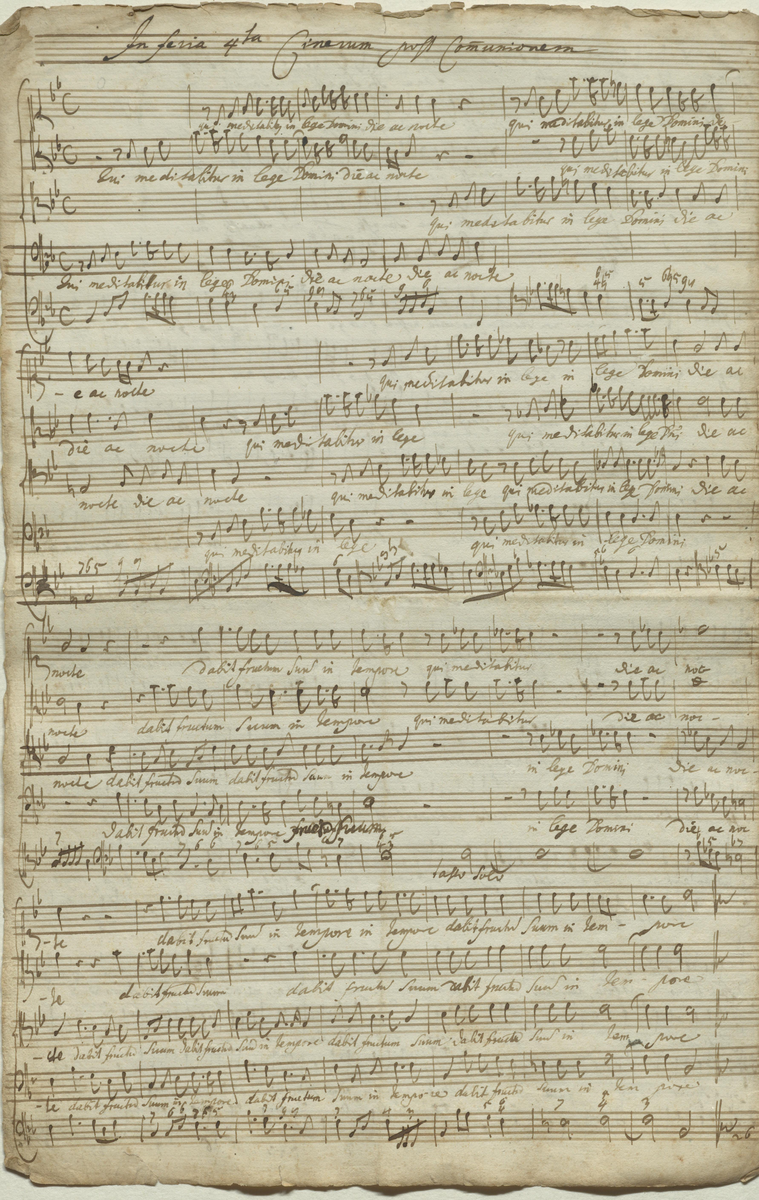 In feria 4ta Cinerum post Comunionem
qui meditabitur in lege Domini die ac nocte qui meditabitur in lege Domini di
Qui meditabitur in lege Domini die ac nocte qui meditabitur in lege Domini
qui meditabitur in lege Domini die ac
Qui meditabitur in lege Domini die ac nocte die ac nocte
- e ac nocte qui meditabitur in lege in lege Domini die ac
die ac nocte qui meditabitur in lege qui meditabitur in lege Dni die ac
nocte die ac nocte qui meditabitur in lege qui meditabitur in lege Domini die ac
qui meditabitur in lege qui meditabitur in lege Domini
765
nocte dabit fructum suu in tempore qui meditabitur die ac noc
nocte dabit fructum suum in tempore qui meditabitur die ac noc -
nocte dabit fructu suum dabit fructu suum in tempore in lege Domini die ac noc
dabit fructu suu in tempore suum in lege Domini die ac noc
tasto solo
- te dabit fructu suu in tempore in tempore dabit fructu suum in tem - pore
- te dabit fructu suum dabit fructu suum dabit fructu suu in tem - pore
- cte dabit fructu suum dabit fructu suu in tempore dabit fructum suum dabit fructu suu in tem pore
- te dabit fructu suum in tempore dabit fructum suum in tempore dabit fructu suum in tem pore